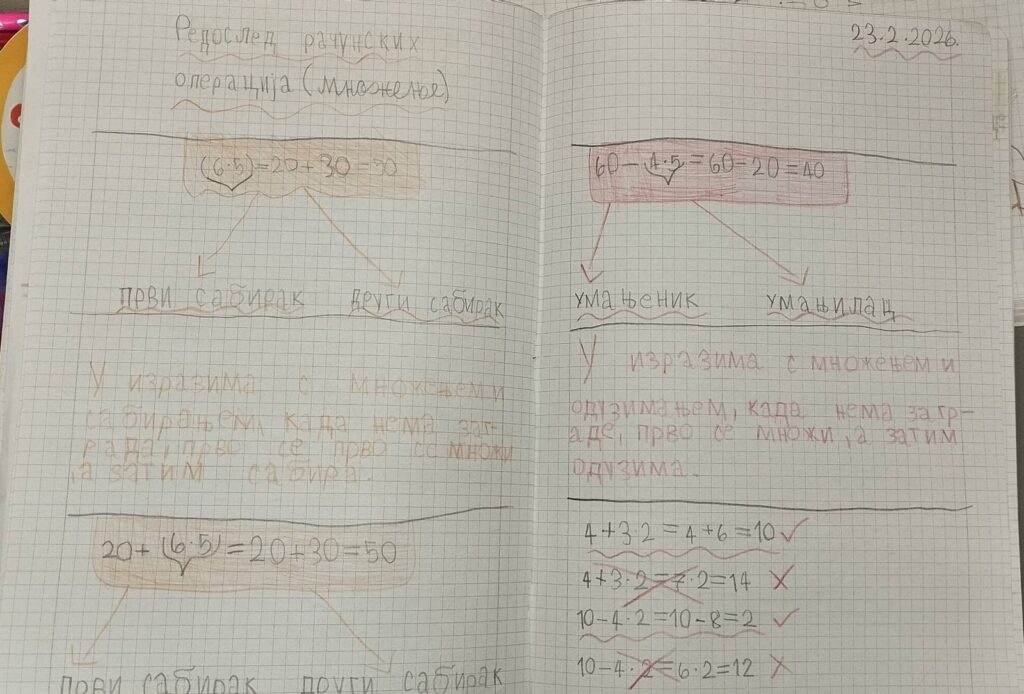 Редослед рачунских
операција (множење)
(6·5)=20+30=50
први сабирак други сабирак
У изразима с множењем и
сабирањем, када нема заг-
рада, прво се прво се множи
,а затим сабира.
20+(6·5)=20+30=50
први сабирак други сабирак
23.2.2026.
60-(4·5=60-20=40
умањеник умањилац
У изразима с множењем и
одузимањем, када нема загр-
аде, прво се множи, а затим
одузима.
4+3·2=4+6=10 ✓
4+3·2=7·2=14 ✗
10-4·2=10-8=2 ✓
10-4·2=6·2=12 ✗